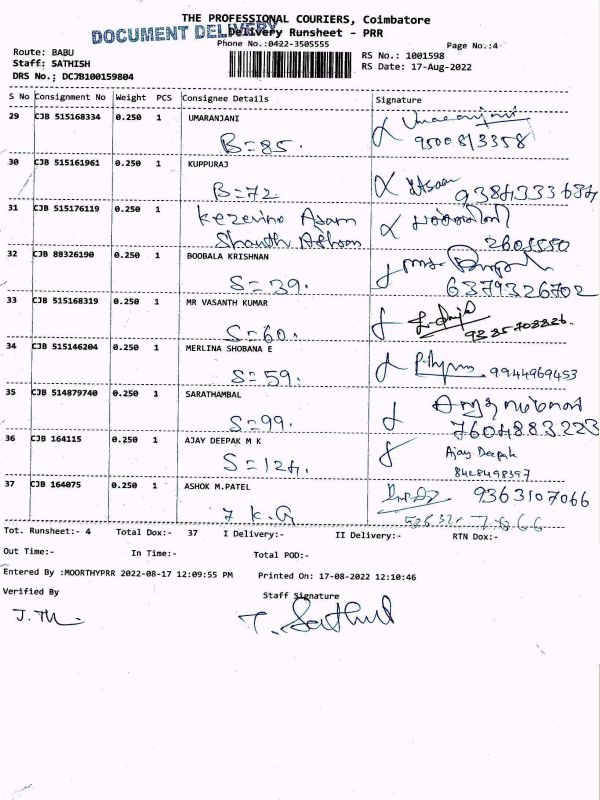 THE PROFESSIONAL COURIERS, Coimbatore
DOCUMENT DELIVERY
Delivery Runsheet - PRR
Phone No.:0422-3505555
Page No.:4
Route: BABU
Staff: SATHISH
DRS No.; DCJB100159804
RS No.: 1001598
RS Date: 17-Aug-2022
S No Consignment No Weight PCS Consignee Details Signature
29 CJB 515168334 0.250 1 UMARANJANI
B=85. 9500813358
30 CJB 515161961 0.250 1 KUPPURAJ
B=72
31 CJB 515176119 0.250 1
32 CJB 88326190 0.250 1 BOOBALA KRISHNAN
S=39. 6379326702
33 CJB 515168319 0.250 1 MR VASANTH KUMAR
S=60.
34 CJB 515146204 0.250 1 MERLINA SHOBANA E
S=59. 9944969453
35 CJB 514879740 0.250 1 SARATHAMBAL
S=99. 7604883223
36 CJB 164115 0.250 1 AJAY DEEPAK M K
Ajay Deepak
S=124. 8428498397
37 CJB 164075 0.250 1 ASHOK M.PATEL
9363107066
7 K.G
Tot. Runsheet:- 4 Total Dox:- 37 I Delivery:- II Delivery:- RTN Dox:-
Out Time:- In Time:- Total POD:-
Entered By :MOORTHYPRR 2022-08-17 12:09:55 PM Printed On: 17-08-2022 12:10:46
Verified By Staff Signature
T. Sathish